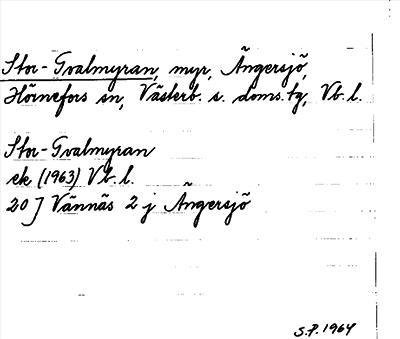 Stor-Tvalmyran, myr, Ängersjö,
Hörnefors sn, Västerb. s. doms. tg, Vb. l.
Stor-Tvalmyran
ek (1963) Vb. l.
20 J Vännäs 2 j Ängersjö
S.P. 1964